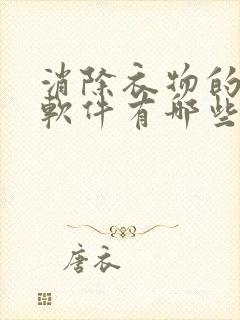 消除衣物的
軟件有哪些
唐衣